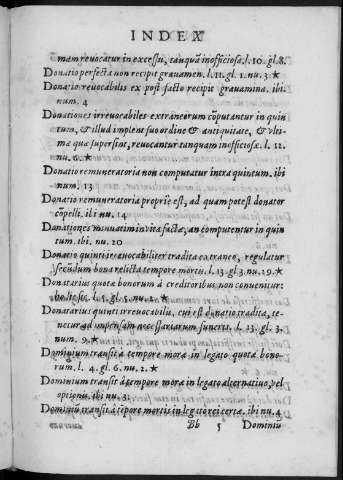 INDEX
mam reuocatur in excessu, tanquã inofficiosa. l. 10. gl. 8.
Donatio perfecta non recipit grauamen. l. 11. gl. 1. nu. 3. ★
Donatio reuocabilis ex post facto recipit grauamina. ibi.
num. 4
Donationes irreuocabiles extraneorum cõputantur in quin
tum, & illud implent suo ordine & antiquitate, & vlti-
ma quæ superfint, reuocantur tanquam inofficiosæ. l. 12.
nu. 6. ★
Donatio remuneratoria non computatur intra quintum. ibi
num. 13
Donatio remuneratoria propriè est, ad quam potest donator
cõpelli. ibi nu. 14
Donationes minutim in vita factæ, an computentur in quin
tum. ibi. nu. 20
Donatio quinti irreuocabiliter tradita extraneo, regulatur
secundum bona relicta tempore mortis. l. 13. gl. 3. nu. 19. ★
Donatarius quotæ bonorum à creditoribus non conuenitur:
l. 5. gl. 5. nu. 2. ★
Donatarius quinti irreuocabilis, cui est donatio tradita, te-
netur ad impensam necessariarum funeris. l. 13. gl. 3.
num. 9. ★
Dominium transit à tempore mora in legato quotæ bono-
rum. l. 4. gl. 6. nu. 2. ★
Dominium transit à tempore mora in legato alternatiuo, vel
optionis. ibi nu. 3.
Dominiũ transit à tẽpore mortis in legato rei certæ. ibi nu. 4
Bb 5 Dominiũ